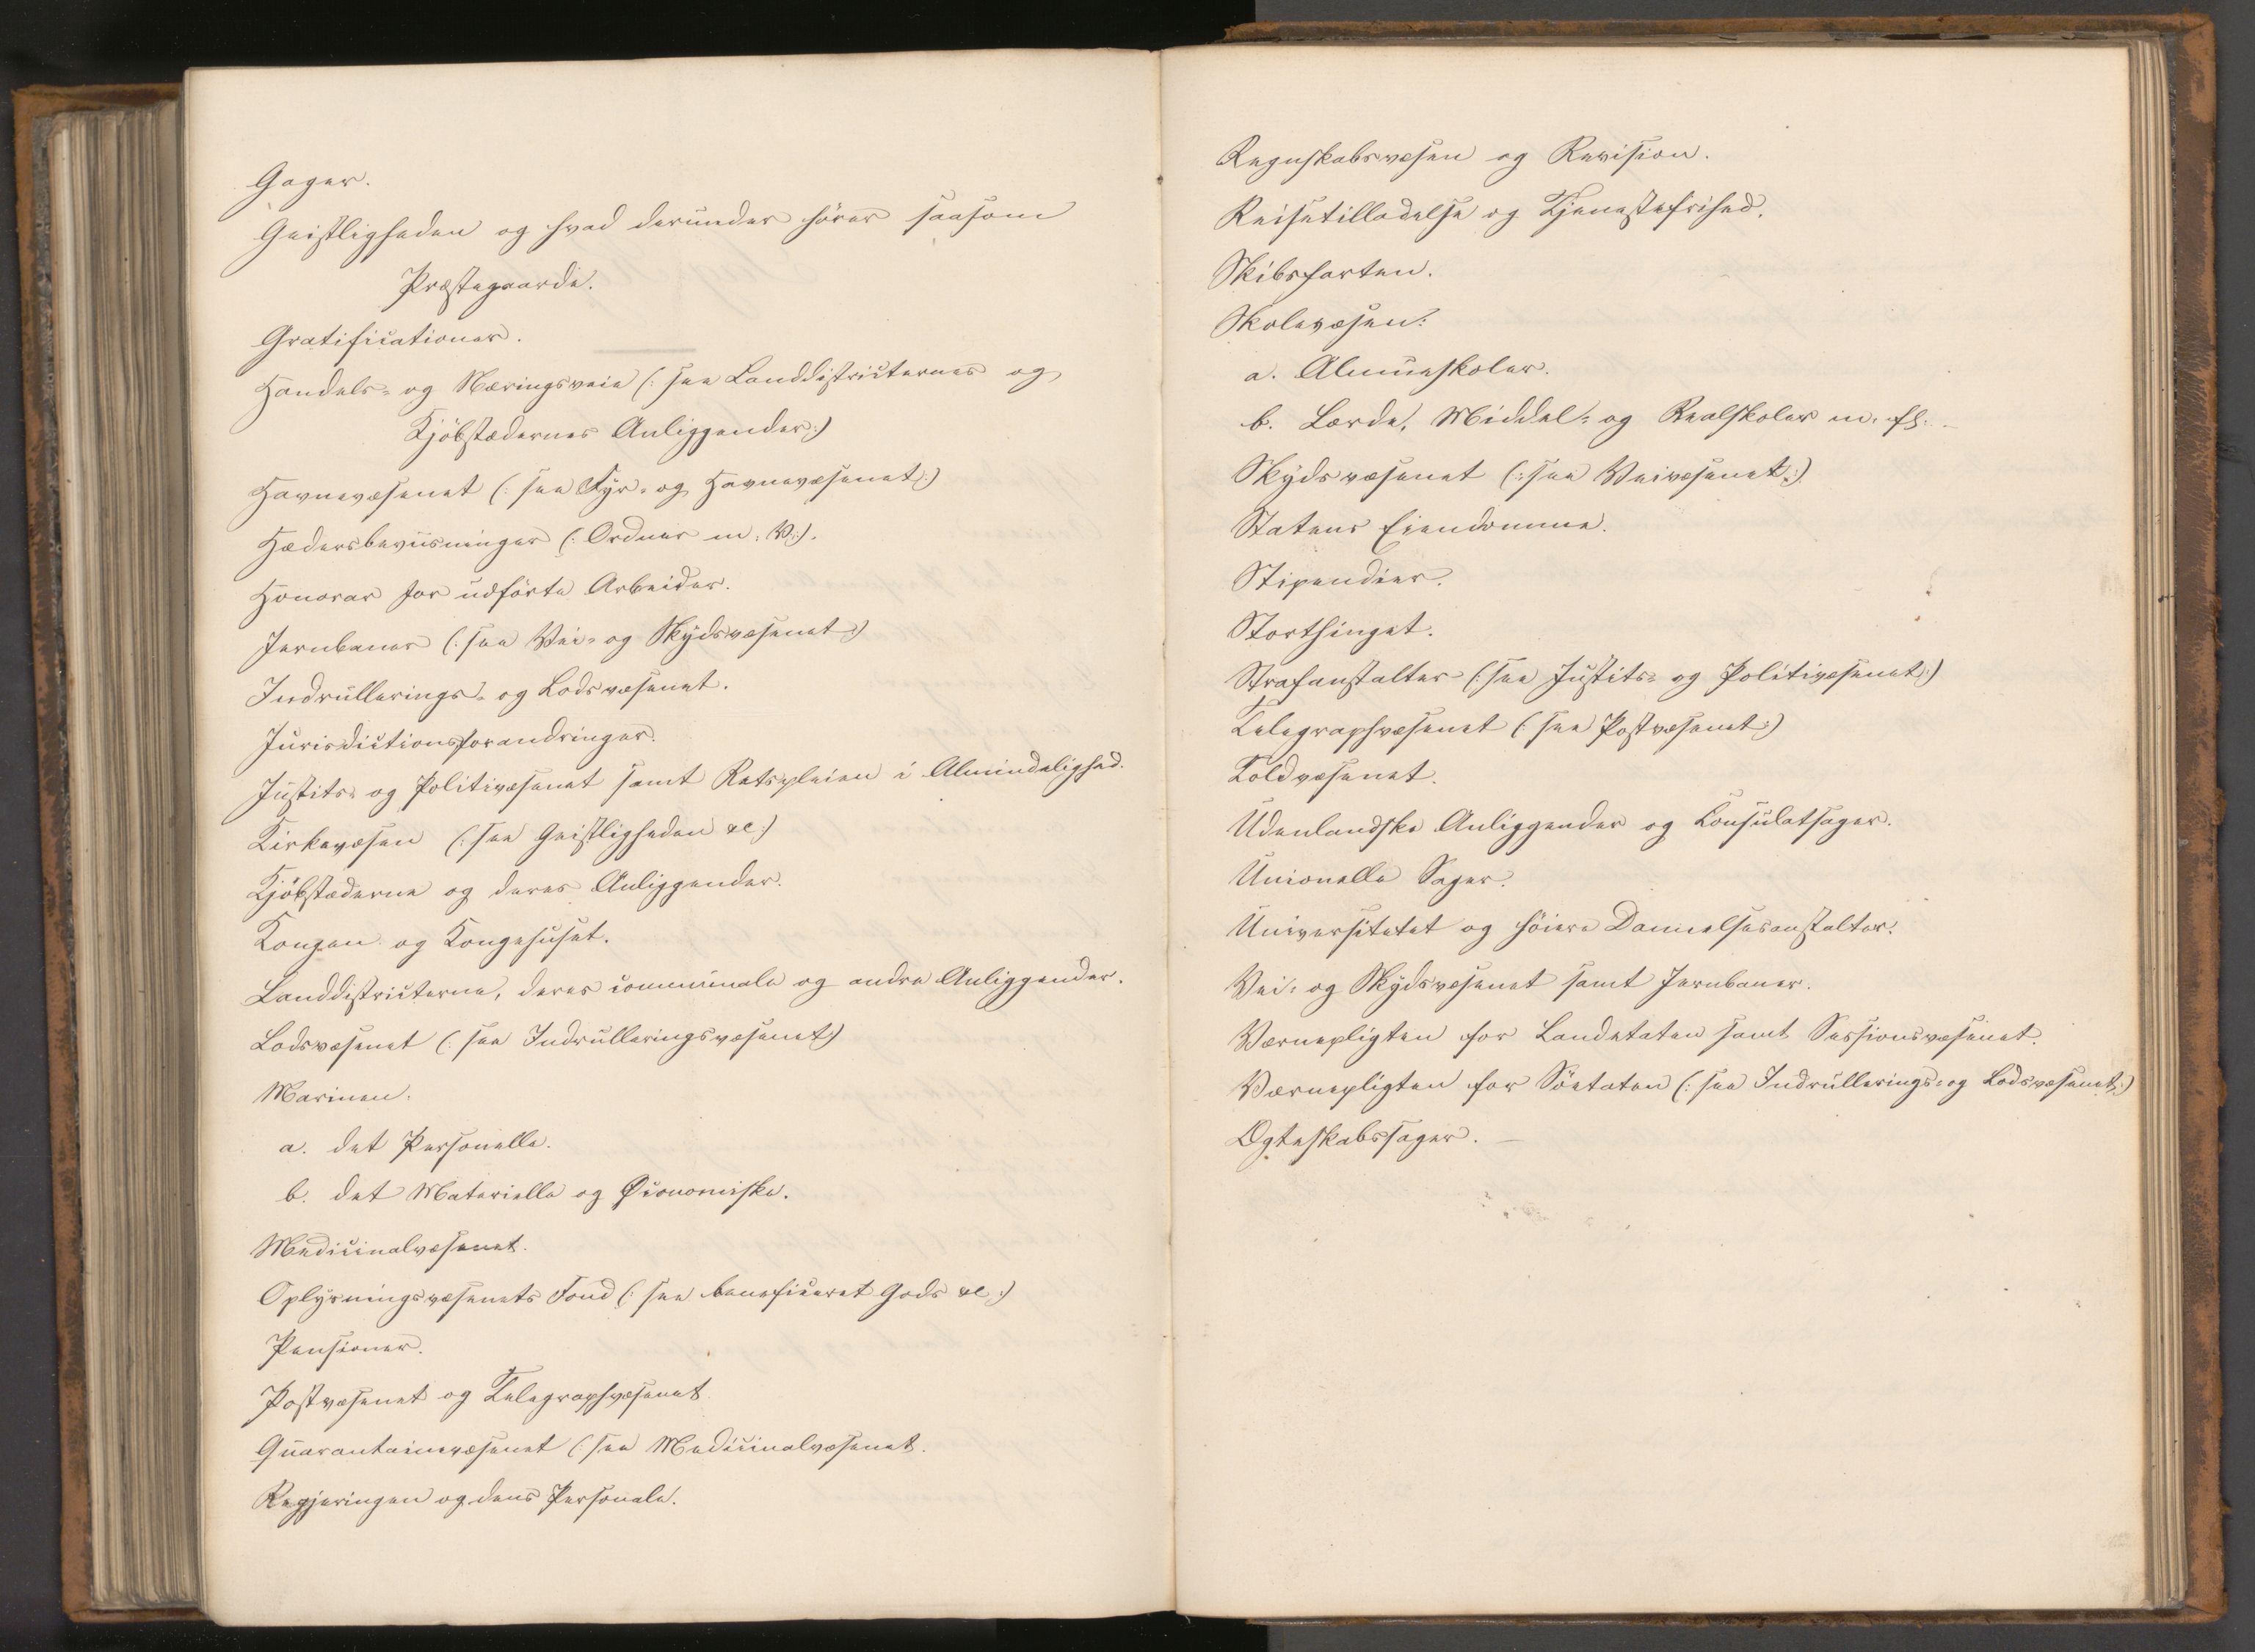 Gager.
Geistligheden og hvad derunder hører saasom
Præstegaarde.
Gratificationer.
Handels- og Næringsveie (: see Landdistricternes og
Kjöbstædernes Anliggender :)
Havnevæsenet (: see Fyr- og Havnevæsenet :)
Hædersbeviisninger (: Ordner m. V :).
Honorar for udförte Arbeider.
Jernbaner (: see Vei- og Skydsvæsenet :)
Indrulerings- og Lodsvæsenet.
Jurisdictionsforandringer.
Justits- og Politivæsenet samt Retspleien i Almindelighed.
Kirkevæsen (: see Geistligheden &c :)
Kjöbstæderne og deres Anliggender.
Kongen og Kongehuset.
Landdistricterne, deres communale og andre Anliggender.
Lodsvæsenet (: see Indrulleringsvæsenet)
Marinen.
a. det Personelle.
b. det Materielle og Øconomiske.
Medicinalvæsenet.
Oplysningsvæsenets Fond (: see beneficeret Gods &c :)
Pensioner.
Postvæsenet og Telegraphvæsenet
Quarantainevæsenet (: see Medicinalvæsenet.
Regjeringen og dens Personale.
Regnskabsvæsen og Revision.
Reisetilladelse og Tjenestefrihed.
Skibsfarten.
Skolevæsen:
a. Almueskoler.
b. Lærde, Middel- og Realskoler m. fl.
Skydsvæsenet (: see Veivæsenet :)
Statens Eiendomme.
Stipendier.
Storthinget.
Strafanstalter (: see Justits- og Politivæsenet :)
Telegraphvæsenet (: see Postvæsenet :)
Toldvæsenet.
Udenlandske Anliggender og Consulatsager.
Unionelle Sager.
Universitetet og höiere Dannelsesanstalter.
Vei- og Skydsvæsenet samt Jernbaner.
Værnepligten for Landetaten samt Sessionsvæsenet.
Værnepligten for Söetaten (: see Indrullerings- og Lodsvæsenet :)
Ægteskabssager. —